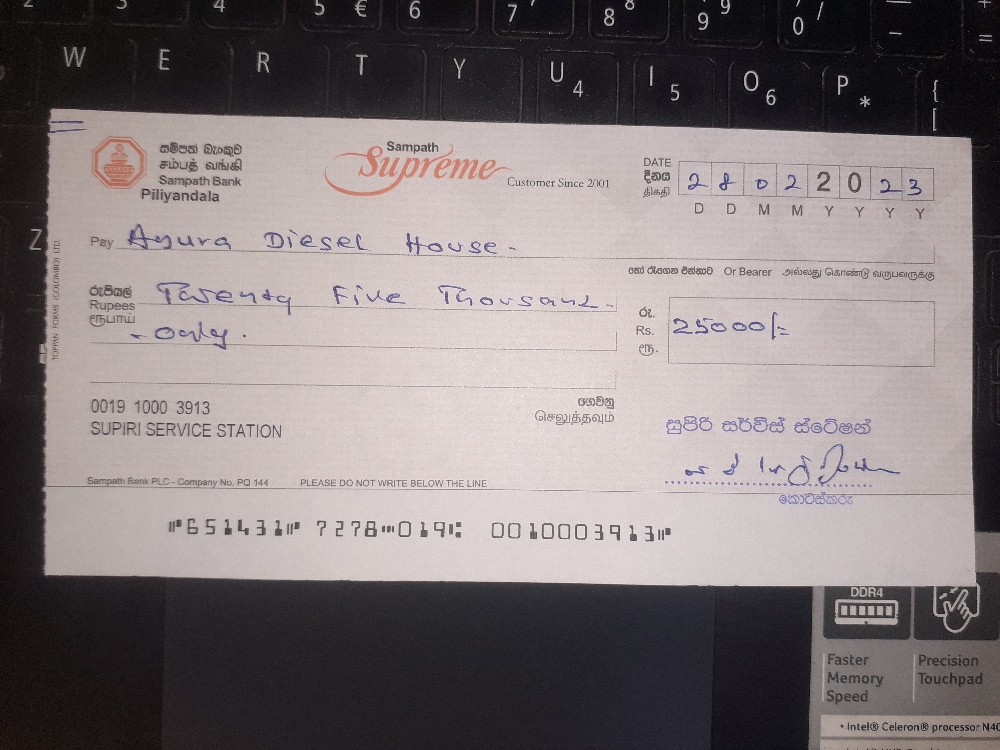 2 3 4 5 € 6 7 8 8 9 9 0 / — - + =
W E R T Y U 4 I 5 O 6 P * { [
Z
සම්පත් බැංකුව
சம்பத் வங்கி
Sampath Bank
Piliyandala
Sampath
Supreme
Customer Since 2001
DATE
දිනය
திகதி
2 8 0 2 2 0 2 3
D D M M Y Y Y Y
Pay Ayura Diesel House -
හෝ රැගෙන එන්නාට Or Bearer அல்லது கொண்டு வருபவருக்கு
රුපියල්
Rupees
ரூபாய்
Twenty Five Thousand -
- only.
රු.
Rs.
ரூ.
25000/=
TOPPAN FORMS (COLOMBO) LTD.
0019 1000 3913
SUPIRI SERVICE STATION
ගෙවනු
செலுத்தவும்
සුපිරි සර්විස් ස්ටේෂන්
කොටස්කරු
Sampath Bank PLC - Company No. PQ 144 PLEASE DO NOT WRITE BELOW THE LINE
⑈651431⑈ 7278⑉019⑆ 0010003913⑈
DDR4
Faster
Memory
Speed
Precision
Touchpad
• Intel® Celeron® processor N40